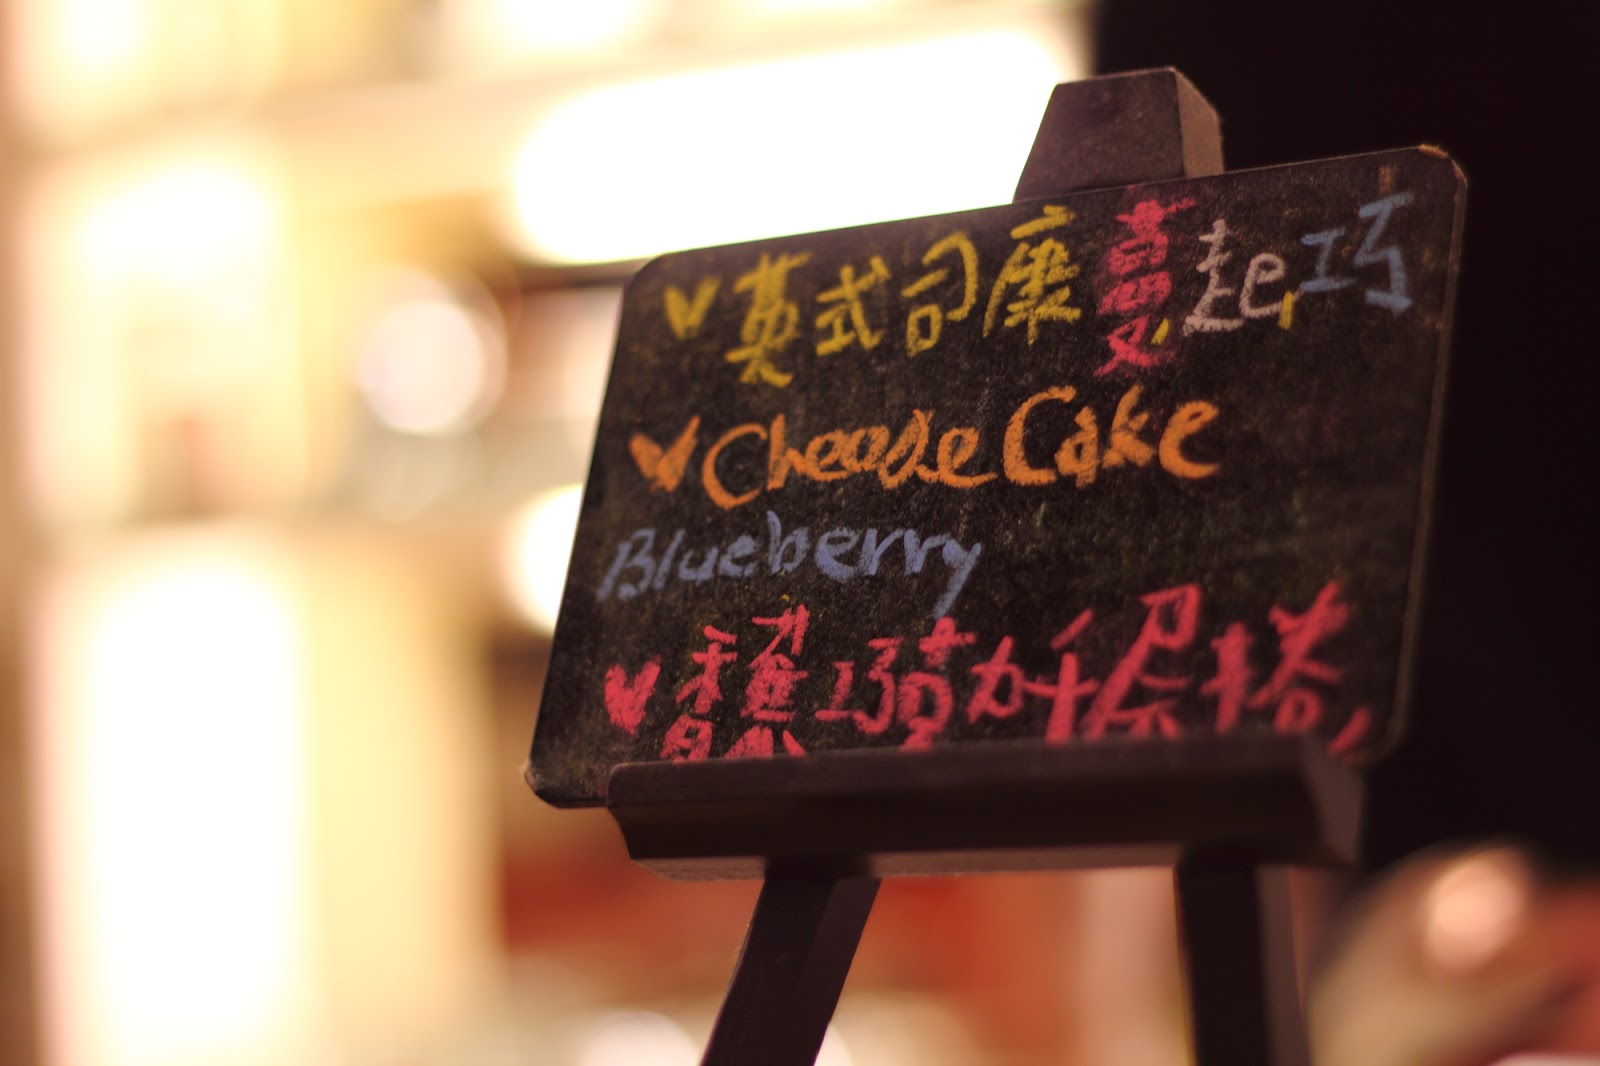 英式司康蔓,起,巧
Cheese Cake
Blueberry
香蕉巧